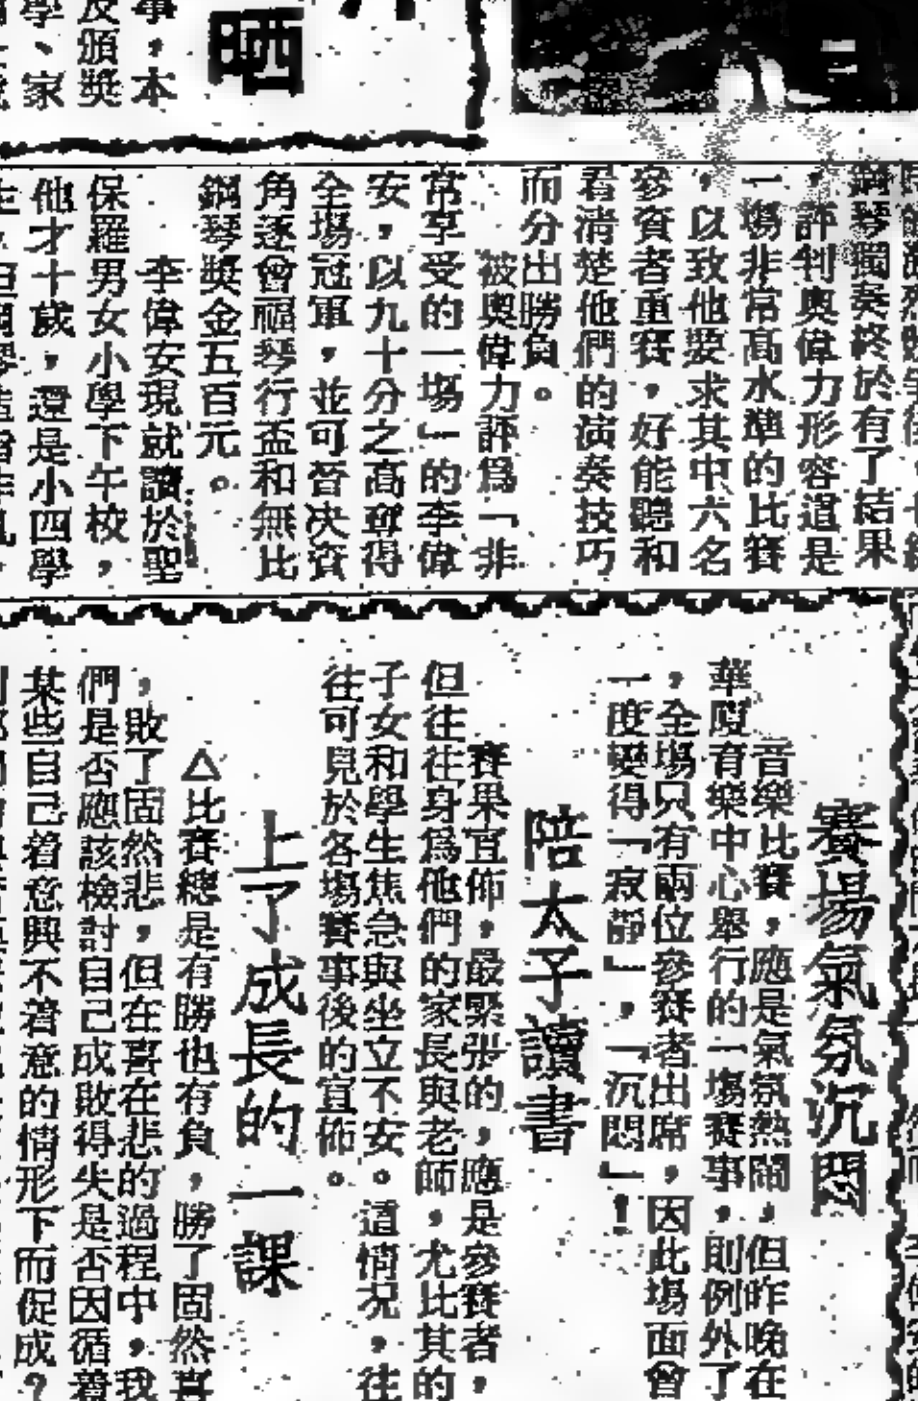 事，本
及頒獎
學、家
晒
鋼琴獨奏終於有了結果
，評判奧偉力形容這是
一塲非常高水準的比賽
，以致他要求其中六名
參賽者重賽，好能聽和
看清楚他們的演奏技巧
而分出勝負。
被奧偉力評爲「非
常享受的一塲」的李偉
安，以九十分之高奪得
全場冠軍，並可晉决賽
角逐曾福琴行盃和無比
鋼琴獎金五百元。
李偉安現就讀於聖
保羅男女小學下午校，
他才十歲，還是小四學
賽場氣氛沉悶
音樂比賽，應是氣氛熱鬧，但昨晚在
華廈育樂中心舉行的一塲賽事，則例外了
，全場只有兩位參賽者出席，因此場面曾
一度變得「寂靜」，「沉悶」！
陪太子讀書
賽果宣佈，最緊張的，應是參賽者，
但往往身爲他們的家長與老師，尤比其的
子女和學生焦急與坐立不安。這情况，往
往可見於各塲賽事後的宣佈。
上了成長的一課
△比賽總是有勝也有負，勝了固然喜
，敗了固然悲，但在喜在悲的過程中，我
們是否應該檢討自己成敗得失是否因循着
某些自己着意與不着意的情形下而促成？